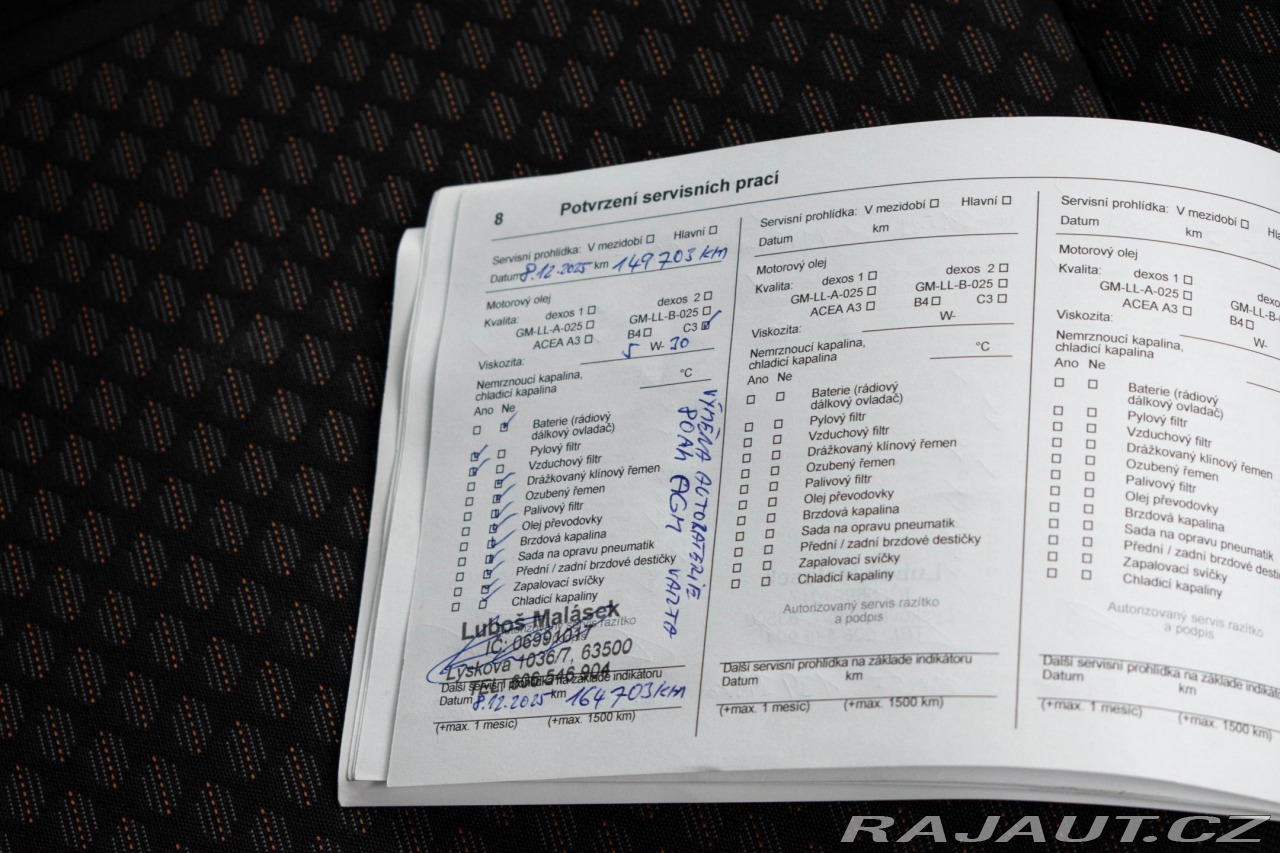 8 Potvrzení servisních prací
Servisní prohlídka: V mezidobí Hlavní
Datum 8.12.2025 km 149 703 km
Motorový olej
Kvalita: dexos 1 dexos 2
GM-LL-A-025 GM-LL-B-025
ACEA A3 B4 C3
Viskozita: 5 W- 30
Nemrznoucí kapalina,
chladicí kapalina °C
Ano Ne
Baterie (rádiový
dálkový ovladač)
Pylový filtr
Vzduchový filtr
Drážkovaný klínový řemen
Ozubený řemen
Palivový filtr
Olej převodovky
Brzdová kapalina
Sada na opravu pneumatik
Přední / zadní brzdové destičky
Zapalovací svíčky
Chladicí kapaliny
VÝMĚNA AUTOBATERIE
80Ah AGM VARTA
Autorizovaný servis razítko
Luboš Malásek
IČ: 06991017
Lýskova 1036/7, 63500
606 546 904
Další servisní prohlídka na základe indikátoru
Datum 8.12.2025 km 164 703 km
(+max. 1 mesíc) (+max. 1500 km)
Servisní prohlídka: V mezidobí Hlavní
Datum km
Motorový olej
Kvalita: dexos 1 dexos 2
GM-LL-A-025 GM-LL-B-025
ACEA A3 B4 C3
Viskozita: W-
Nemrznoucí kapalina,
chladicí kapalina °C
Ano Ne
Baterie (rádiový
dálkový ovladač)
Pylový filtr
Vzduchový filtr
Drážkovaný klínový řemen
Ozubený řemen
Palivový filtr
Olej převodovky
Brzdová kapalina
Sada na opravu pneumatik
Přední / zadní brzdové destičky
Zapalovací svíčky
Chladicí kapaliny
Autorizovaný servis razítko
a podpis
Další servisní prohlídka na základe indikátoru
Datum km
(+max. 1 mesíc) (+max. 1500 km)
Servisní prohlídka: V mezidobí
Datum km
Motorový olej
Kvalita: dexos 1
GM-LL-A-025
ACEA A3 B4
Viskozita: W-
Nemrznoucí kapalina,
chladicí kapalina
Ano Ne
Baterie (rádiový
dálkový ovladač)
Pylový filtr
Vzduchový filtr
Drážkovaný klínový řemen
Ozubený řemen
Palivový filtr
Olej převodovky
Brzdová kapalina
Sada na opravu pneumatik
Přední / zadní brzdové
Zapalovací svíčky
Chladicí kapaliny
Autorizovaný servis razítko
a podpis
Další servisní prohlídka na základe
Datum km
(+max. 1 mesíc) (+max. 1500 km)
RAJAUT.CZ